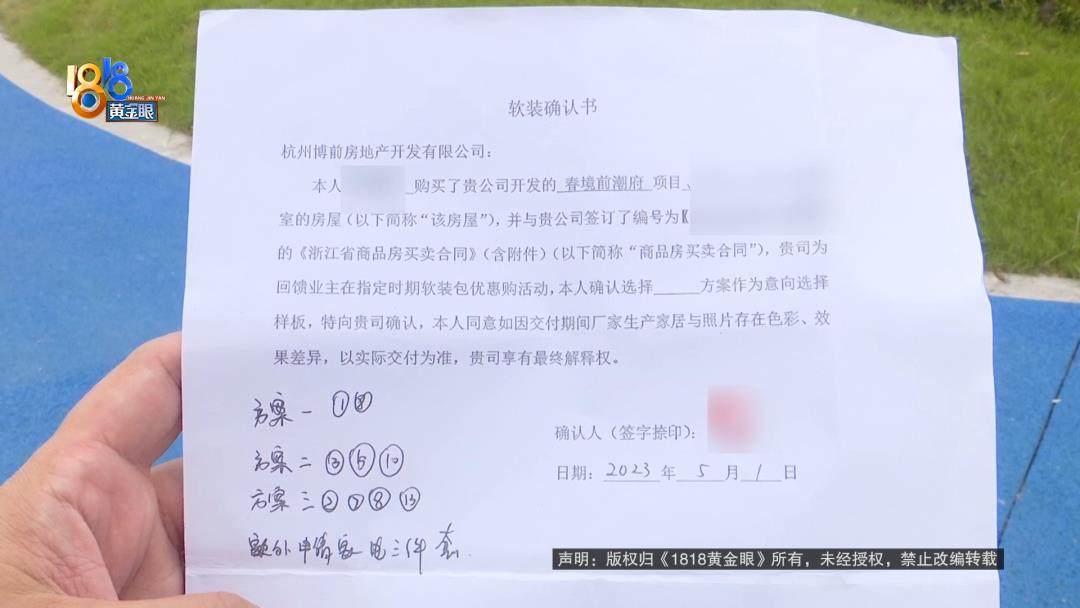 1818
HUANG JIN YAN
黄金眼
软装确认书
杭州博前房地产开发有限公司：
本人 购买了贵公司开发的 春境前潮府 项目、
室的房屋（以下简称“该房屋”），并与贵公司签订了编号为【
的《浙江省商品房买卖合同》（含附件）（以下简称“商品房买卖合同”），贵司为
回馈业主在指定时期软装包优惠购活动，本人确认选择______方案作为意向选择
样板，特向贵司确认，本人同意如因交付期间厂家生产家居与照片存在色彩、效
果差异，以实际交付为准，贵司享有最终解释权。
方案一 ①
方案二 ⑬ ⑤ ⑩
方案三 ② ⑦ ⑧ ⑬
额外申请家电三件套
确认人（签字捺印）：
日期：2023 年 5 月 1 日
声明：版权归《1818黄金眼》所有，未经授权，禁止改编转载